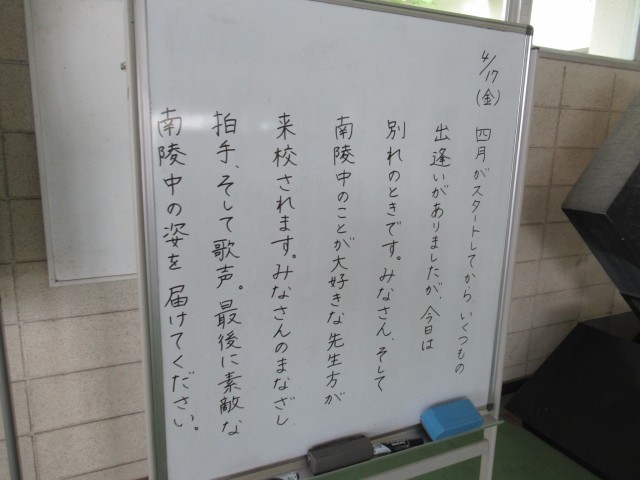 4/17(金)
四月がスタートしてから いくつもの
出逢いがありましたが、今日は
別れのときです。みなさん、そして
南陵中のことが大好きな先生方が
来校されます。みなさんのまなざし、
拍手、そして歌声。最後に素敵な
南陵中の姿を届けてください。